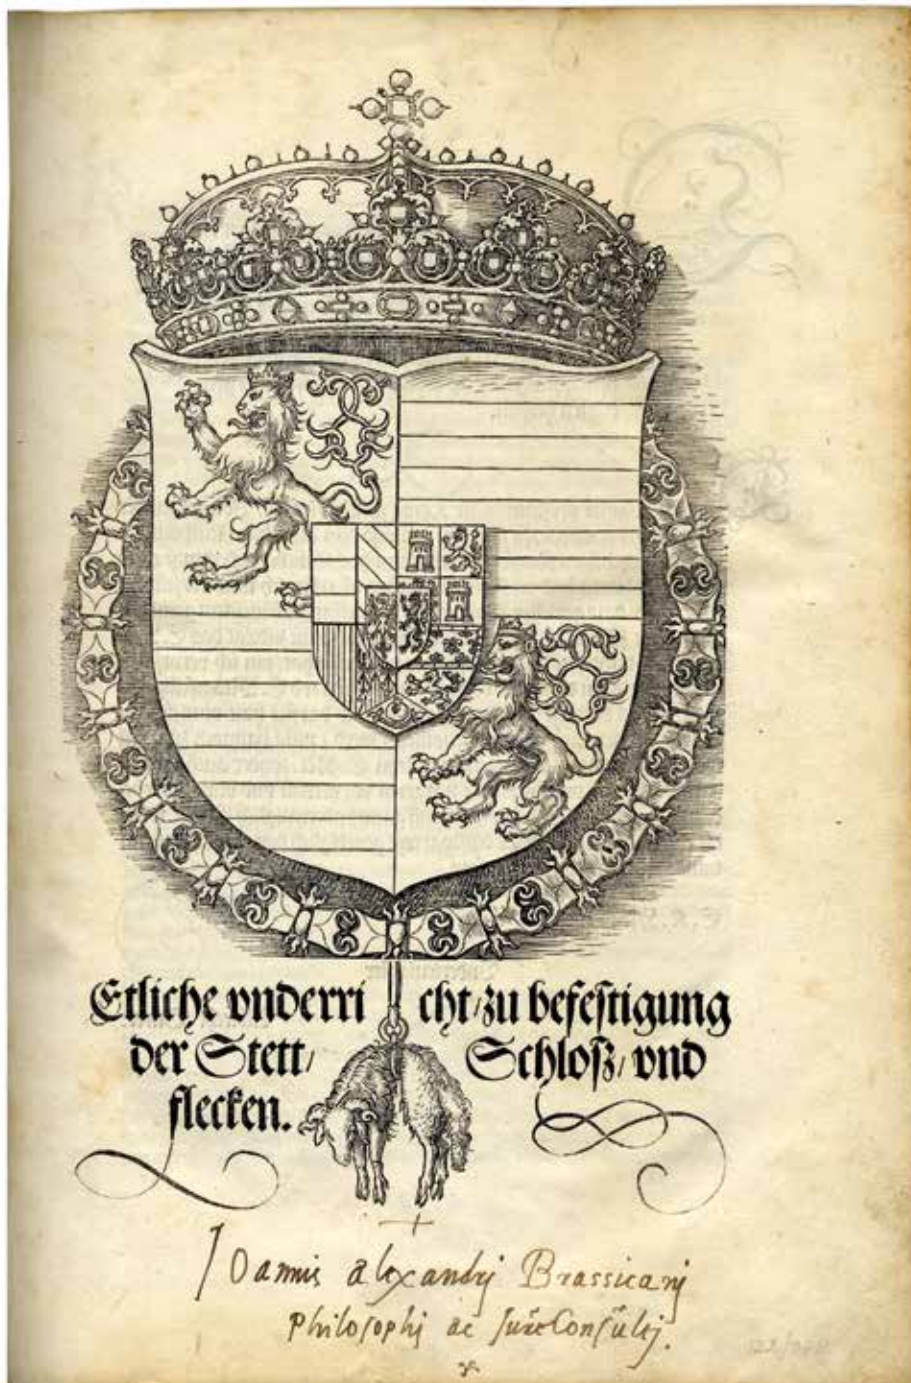 Etliche vnderri cht/ zu befestigung
der Stett/ Schloſz/ vnd
flecken.
Ioannis alexandrj Brassicanj
Philosophi ac Jure Consultj.